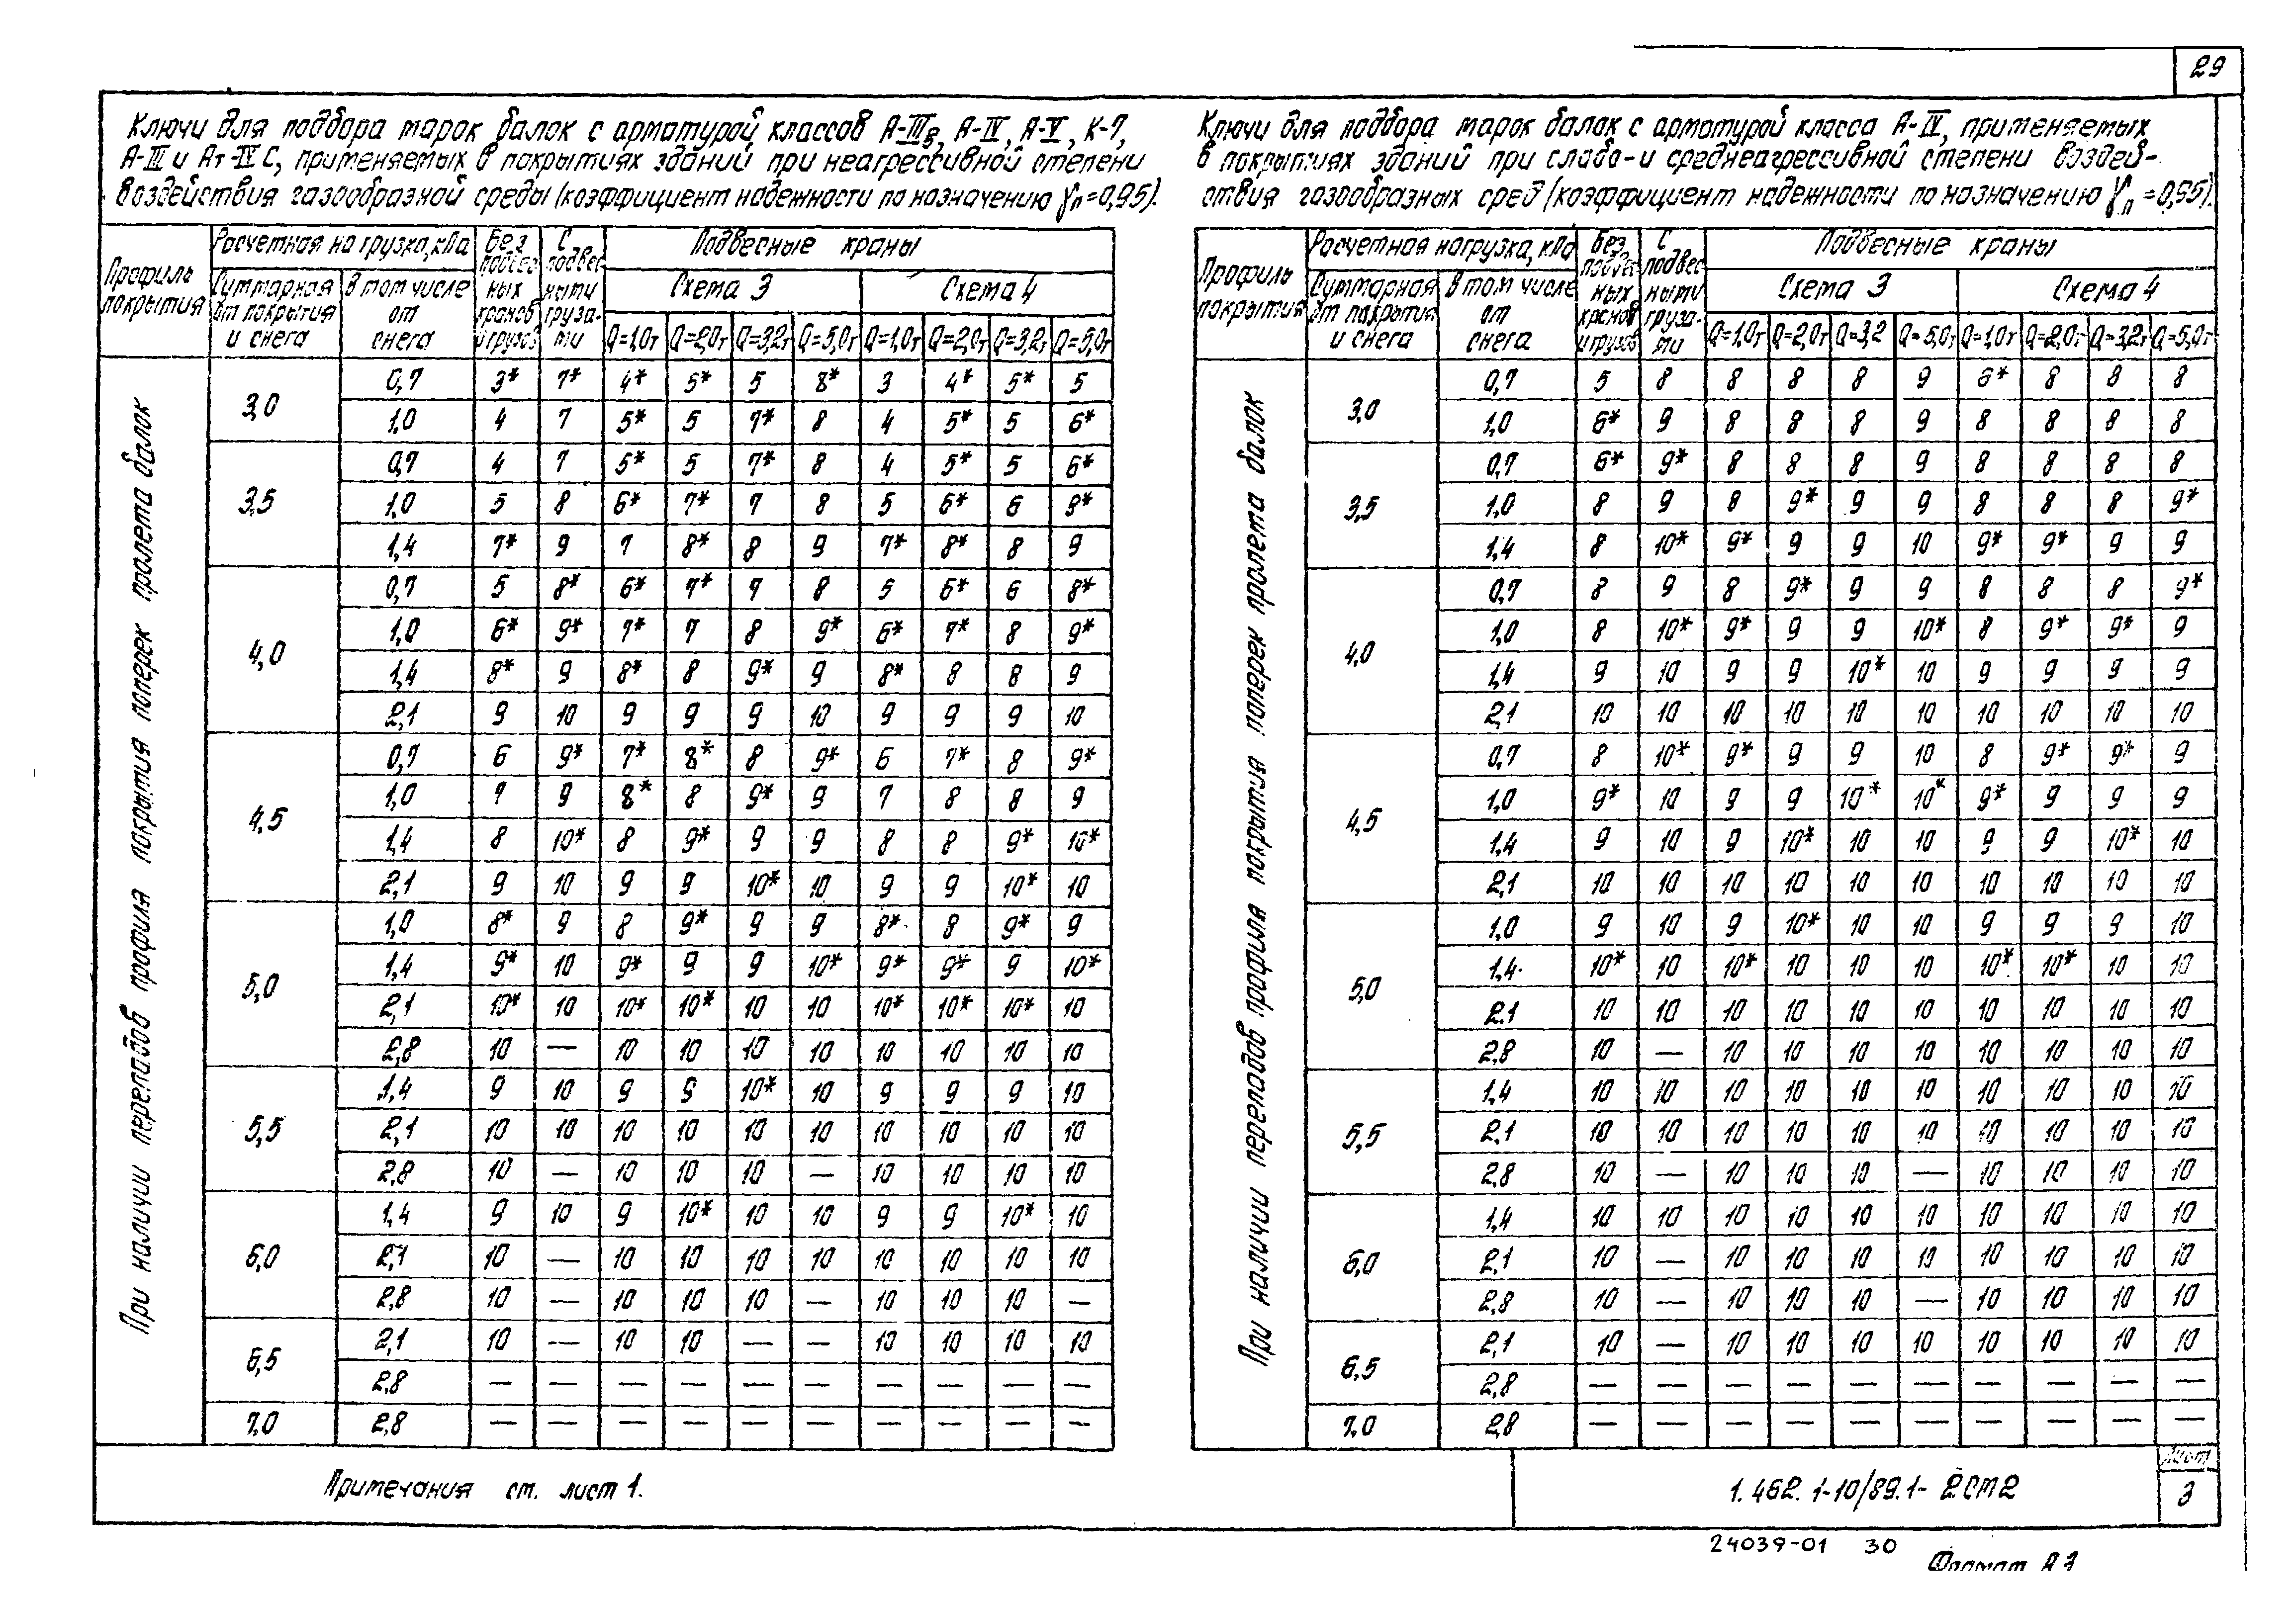 29
Ключи для подбора марок балок с арматурой классов А-IIIв, А-IV, А-V, К-7,
А-III и Ат-IVС, применяемых в покрытиях зданий при неагрессивной степени
воздействия газообразной среды (коэффициент надежности по назначению γn=0,95).
Профиль покрытия
Расчетная нагрузка, кПа
Суммарная от покрытия и снега
В том числе от снега
Без подвесных кранов и грузов
С подвесными грузами
Подвесные краны
Схема 3
Схема 4
Q=1,0т Q=2,0т Q=3,2т Q=5,0т Q=1,0т Q=2,0т Q=3,2т Q=5,0т
При наличии перепадов профиля покрытия поперек пролета балок
3,0 0,7 3* 7* 4* 5* 5 8* 3 4* 5* 5
1,0 4 7 5* 5 7* 8 4 5* 5 6*
3,5 0,7 4 7 5* 5 7* 8 4 5* 5 6*
1,0 5 8 6* 7* 7 8 5 6* 6 8*
1,4 7* 9 7 8* 8 9 7* 8* 8 9
4,0 0,7 5 8* 6* 7* 7 8 5 6* 6 8*
1,0 6* 9* 7* 7 8 9* 6* 7* 8 9*
1,4 8* 9 8* 8 9* 9 8* 8 8 9
2,1 9 10 9 9 9 10 9 9 9 10
4,5 0,7 6 9* 7* 8* 8 9* 6 7* 8 9*
1,0 7 9 8* 8 9* 9 7 8 8 9
1,4 8 10* 8 9* 9 9 8 8 9* 10*
2,1 9 10 9 9 10* 10 9 9 10* 10
5,0 1,0 8* 9 8 9* 9 9 8* 8 9* 9
1,4 9* 10 9* 9 9 10* 9* 9* 9 10*
2,1 10* 10 10* 10* 10 10 10* 10* 10* 10
2,8 10 — 10 10 10 10 10 10 10 10
5,5 1,4 9 10 9 9 10* 10 9 9 9 10
2,1 10 10 10 10 10 10 10 10 10 10
2,8 10 — 10 10 10 — 10 10 10 10
6,0 1,4 9 10 9 10* 10 10 9 9 10* 10
2,1 10 — 10 10 10 10 10 10 10 10
2,8 10 — 10 10 10 — 10 10 10 —
6,5 2,1 10 — 10 10 — — 10 10 10 10
2,8 — — — — — — — — — —
7,0 2,8 — — — — — — — — — —
Ключи для подбора марок балок с арматурой класса А-IV, применяемых
в покрытиях зданий при слабо- и среднеагрессивной степени воздей-
ствия газообразных сред (коэффициент надежности по назначению γn=0,95).
Профиль покрытия
Расчетная нагрузка, кПа
Суммарная от покрытия и снега
В том числе от снега
Без подвесных кранов и грузов
С подвесными грузами
Подвесные краны
Схема 3
Схема 4
Q=1,0т Q=2,0т Q=3,2 Q=5,0т Q=1,0т Q=2,0т Q=3,2т Q=5,0т
При наличии перепадов профиля покрытия поперек пролета балок
3,0 0,7 5 8 8 8 8 9 6* 8 8 8
1,0 6* 9 8 8 8 9 8 8 8 8
3,5 0,7 6* 9* 8 8 8 9 8 8 8 8
1,0 8 9 8 9* 9 9 8 8 8 9*
1,4 8 10* 9* 9 9 10 9* 9* 9 9
4,0 0,7 8 9 8 9* 9 9 8 8 8 9*
1,0 8 10* 9* 9 9 10* 8 9* 9* 9
1,4 9 10 9 9 10* 10 9 9 9 9
2,1 10 10 10 10 10 10 10 10 10 10
4,5 0,7 8 10* 9* 9 9 10 8 9* 9* 9
1,0 9* 10 9 9 10* 10* 9* 9 9 9
1,4 9 10 9 10* 10 10 9 9 10* 10
2,1 10 10 10 10 10 10 10 10 10 10
5,0 1,0 9 10 9 10* 10 10 9 9 9 10
1,4 10* 10 10* 10 10 10 10* 10* 10 10
2.1 10 10 10 10 10 10 10 10 10 10
2.8 10 — 10 10 10 10 10 10 10 10
5,5 1,4 10 10 10 10 10 10 10 10 10 10
2.1 10 10 10 10 10 10 10 10 10 10
2,8 10 — 10 10 10 — 10 10 10 10
6,0 1,4 10 10 10 10 10 10 10 10 10 10
2.1 10 — 10 10 10 10 10 10 10 10
2,8 10 — 10 10 10 — 10 10 10 10
6,5 2,1 10 — 10 10 10 10 10 10 10 10
2,8 — — — — — — — — — —
7,0 2,8 — — — — — — — — — —
Примечания см. лист 1.
1.462.1-10/89.1- 2СМ2
Лист
3
24039-01 30
Формат А3